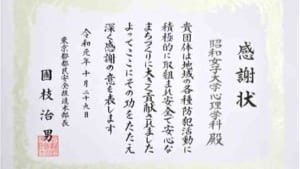 感謝状
昭和女子大学心理学科 殿
貴団体は地域の各種防犯活動に
積極的に取組まれ安全で安心な
まちづくりに大きく貢献されました
よってここにその功をたたえ
深く感謝の意を表します
令和元年十月二十九日
東京都都民安全推進本部長
國枝治男